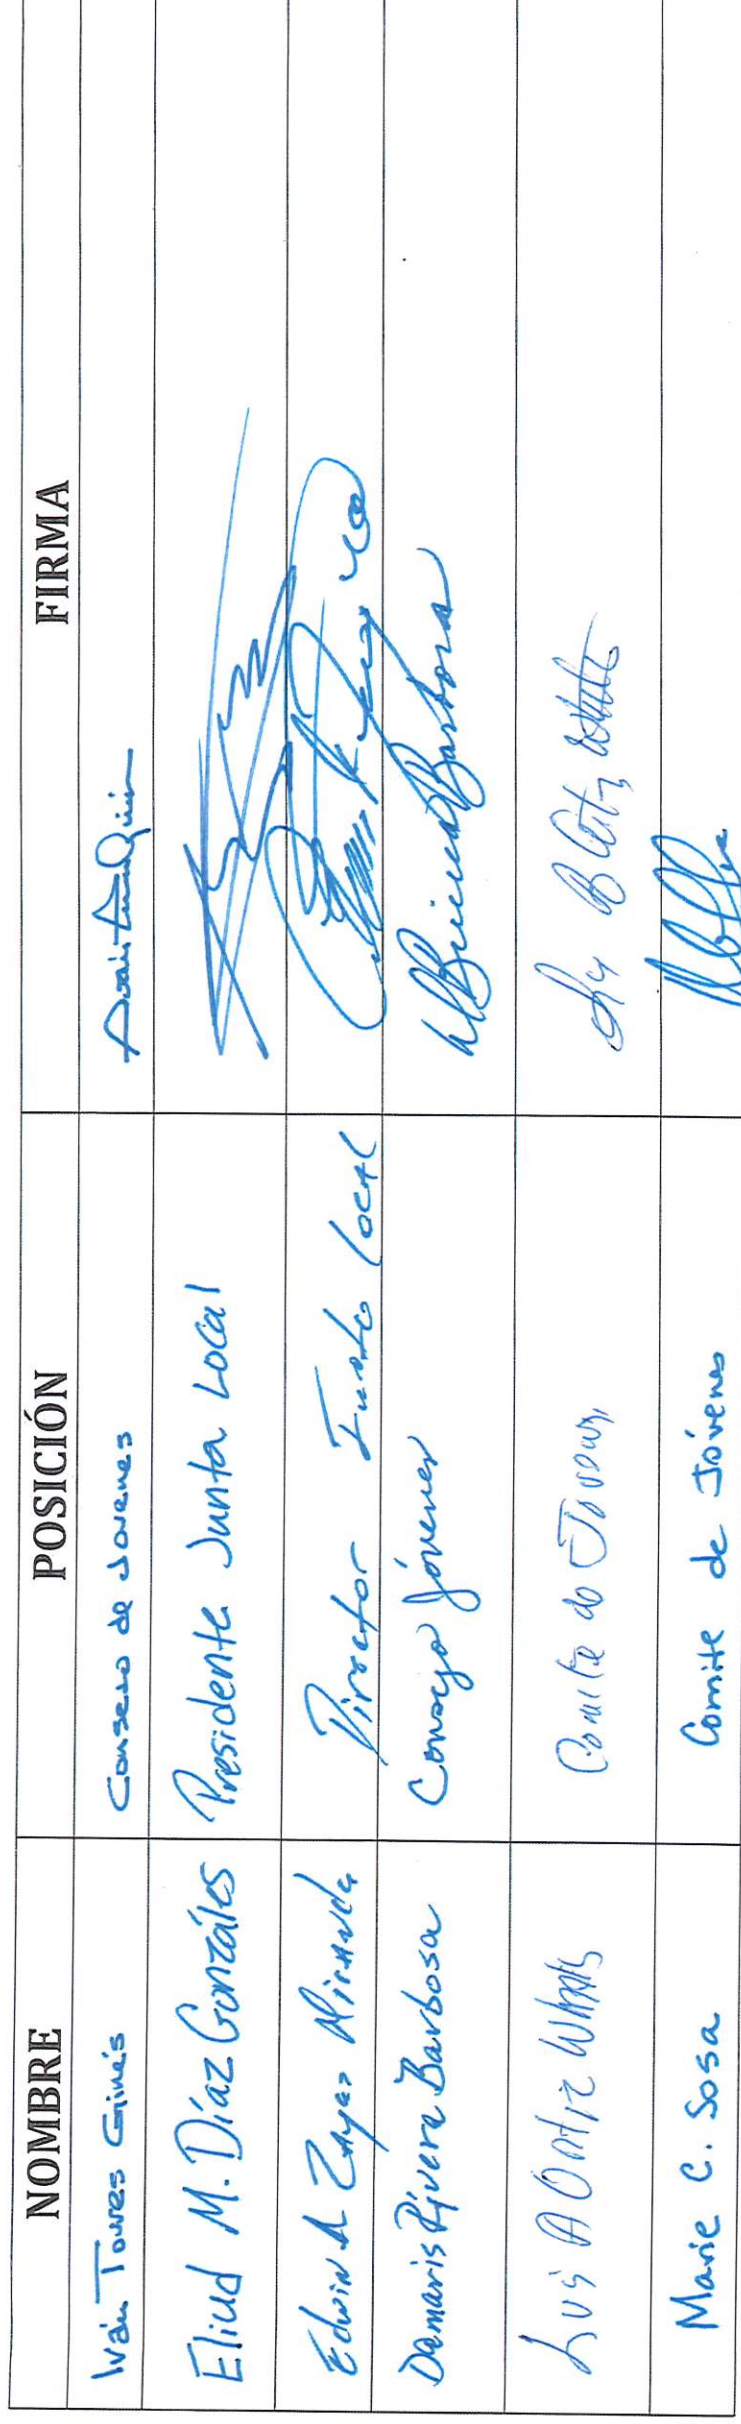 NOMBRE POSICIÓN FIRMA
Iván Torres Ginés Consejo de Jovenes
Eliud M. Díaz Gonzáles Presidente Junta Local
Edwin A Zayas Miranda Director Junta Local
Damaris Rivera Barbosa Consejo Jóvenes DRivera Barbosa
Luis A Ortiz Comite de Jovenes
Marie C. Sosa Comite de Jóvenes